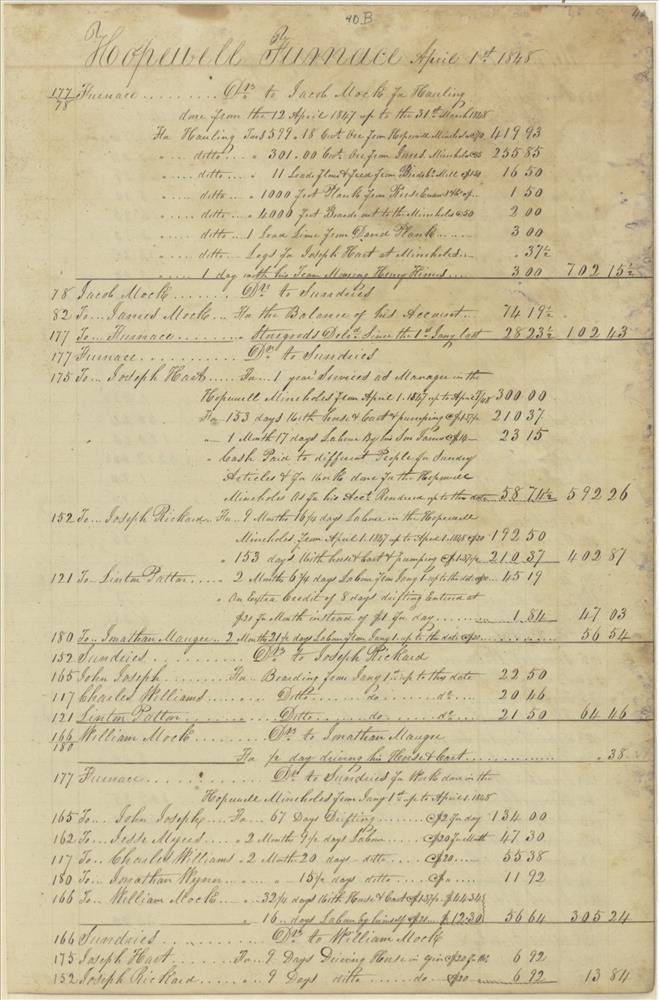 40.B
Hopewell Furnace April 1st 1848
177/78 Furnace Drs to Jacob Mock for Hauling
done from the 12 April 1847 up to the 31st March 1848
For Hauling Tons 599 " 18 Cwt. Ore from Hopewell Mineholes @70 419 93
" ditto " 301 " 00 Cwt. Ore from Jones Mineholes @85 255 85
" ditto " 11 Loads Flour & Feed from Mill @1.50 16 50
" ditto " 1000 feet Plank from 1 50
" ditto " 4000 feet Boards out to the Mineholes @50 2 00
" ditto 1 Load Lime from David Plank 3 00
" ditto Logs for Joseph Hart at Mineholes " 37½
" 1 day with his Team Moving Henry Himes 3 00 702 15½
78 Jacob Mock Dr to Sundries
82 To James Mock For the Balance of his Account 74 19½
177 To Furnace " Storegoods Deld. Since the 1st Jany last 28 23½ 102 43
177 Furnace Dr to Sundries
175 To Joseph Hart For 1 year Services as Manager in the
Hopewell Mineholes from April 1. 1847 up to April 1/48 300 00
For 153 days With horse & Cart & pumping @1.37½ 210 37
" 1 Month 17 days Labour By his Son @14 23 15
" Cash Paid to different People for Sundry
Articles & for Work done for the Hopewell
Mineholes As for his Acct. Rendered up to this date 58 74½ 592 26
152 To Joseph Rickard For 9 Months 16¼ days Labour in the Hopewell
Mineholes from April 1. 1847 up to April 1. 1848 @20 192 50
" 153 days With horse & Cart & Pumping @1.37½ 210 37 402 87
121 To Linton Patton " 2 Months 6¾ days Labour from Jany 1 up to this dd. @20 45 19
" An Extra Credit of 8 days drifting Entered at
$20 for Month instead of $1 for day 1.84 47 03
180 To Jonathan Mauger 2 Months 21½ days Labour from Jany 1 up to this date @20 56 54
152 Sundries Drs to Joseph Rickard
165 John Joseph For Boarding from Jany 1st up to this date 22 50
117 Charles Williams Ditto do do 20 46
121 Linton Patton Ditto do do 21 50 64 46
166/180 William Mock Dr to Jonathan Mauger
For ½ day driving his Horse & Cart " 38
177 Furnace Dr to Sundries for Work done in the
Hopewell Mineholes from Jany 1st up to April 1. 1848
165 To John Joseph For 67 Days Drifting @2 for day 134 00
162 To Jesse Myers " 2 Months 9½ days Labour @20 for Month 47 30
117 To Charles Williams " 2 Month 20 days ditto @20 55 38
180 To Jonathan Wynn " 15½ days ditto @ 11 92
166 To William Mock " 32¼ days With Horse & Cart @1.37½ $44.34
" 16 days Labour by himself @20 $12.30 56 64 305 24
166 Sundries Drs to William Mock
175 Joseph Hart For 9 Days Driving Horse in gin @20 for Mo. 6 92
152 Joseph Rickard " 9 Days ditto do @20 6 92 13 84